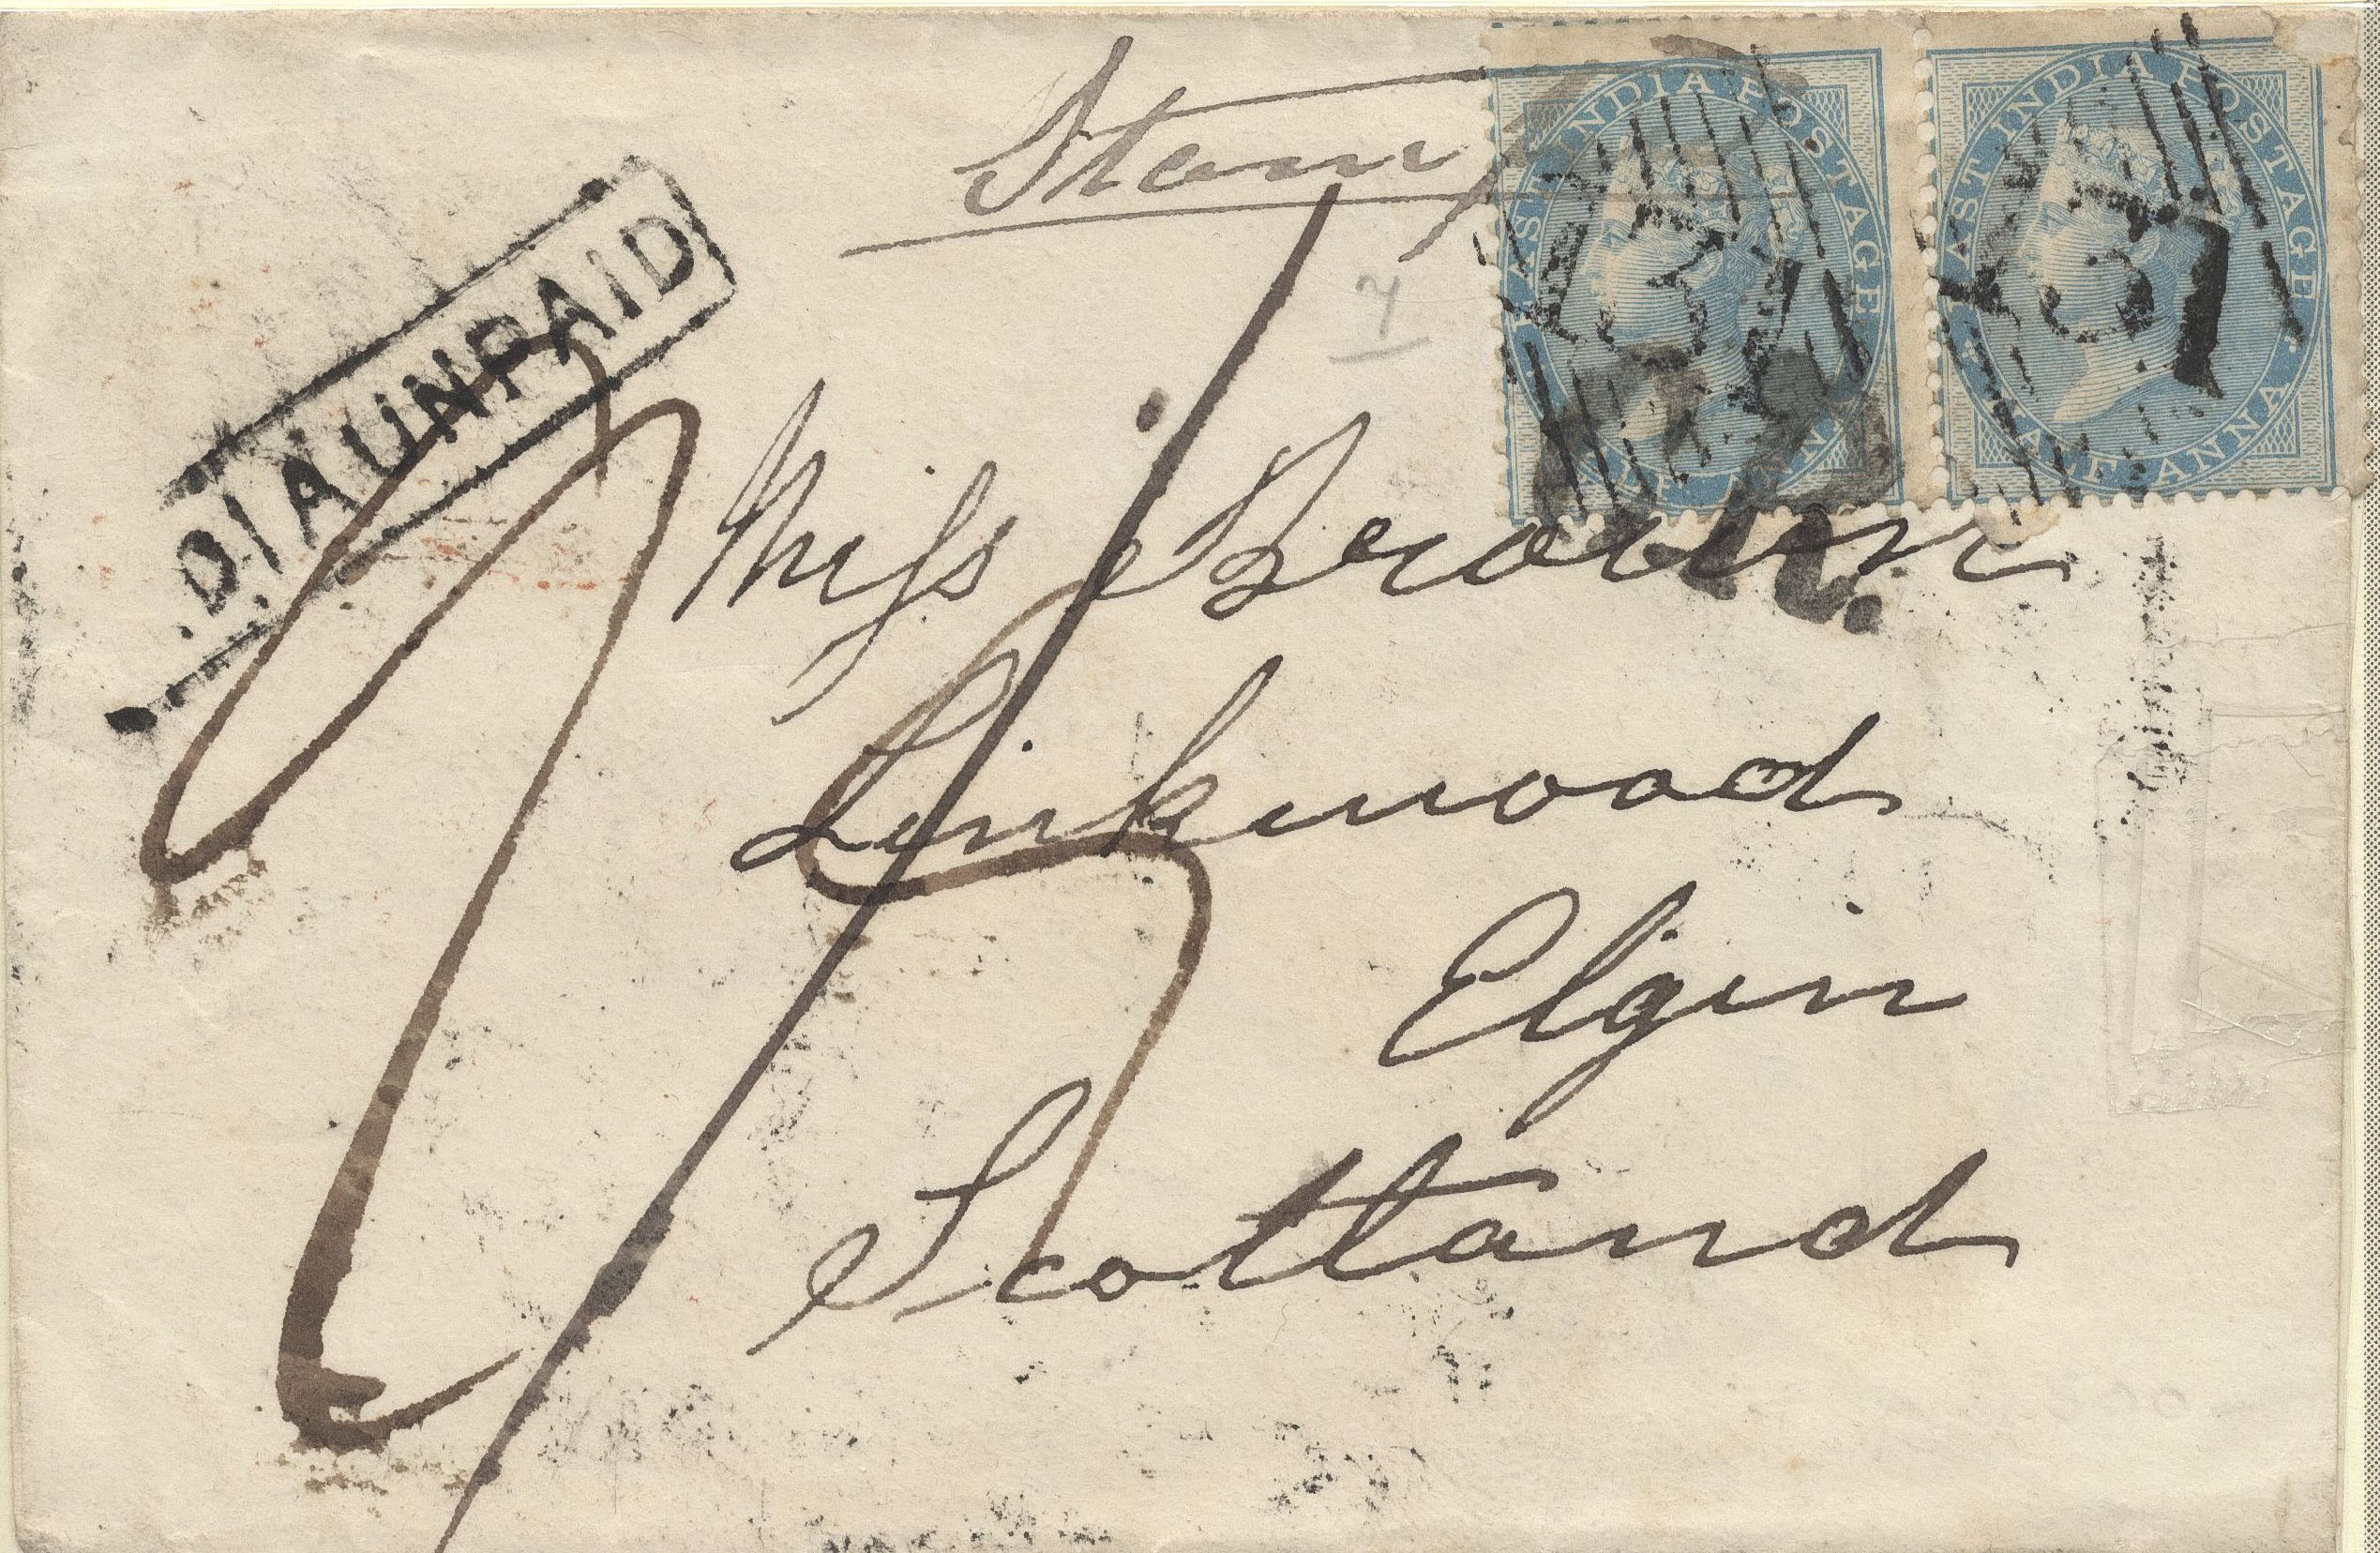 Stamp
INDIA UNPAID
EAST INDIA POSTAGE
HALF ANNA
EAST INDIA POSTAGE
HALF ANNA
Miss Brown
Linkwood
Elgin
Scotland